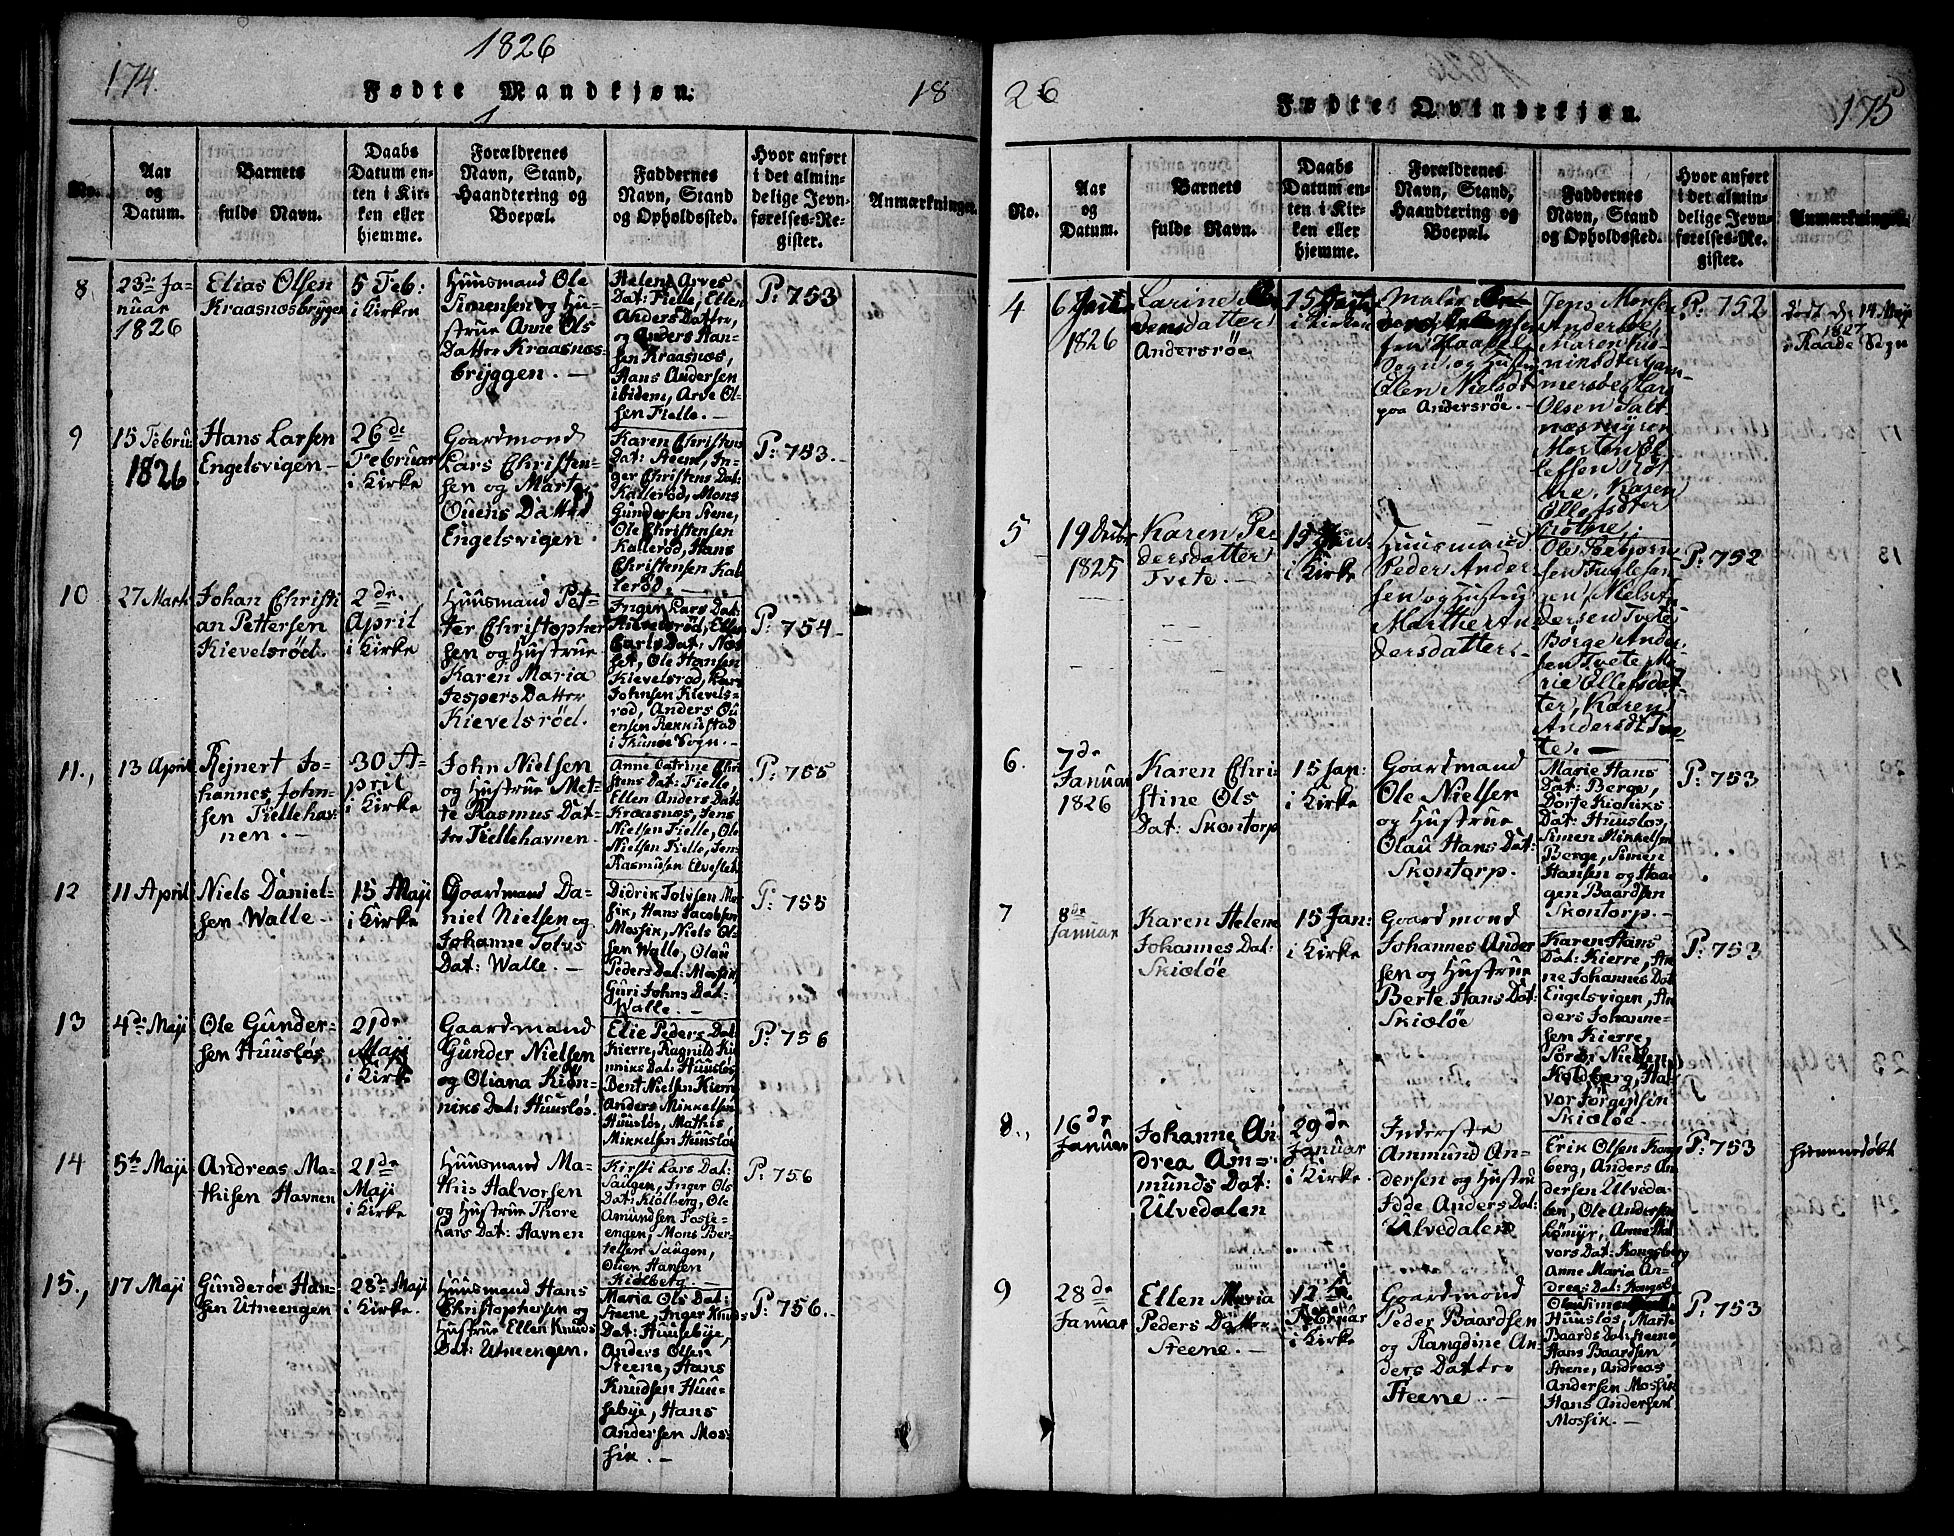 1826
174.
Fødte Mandkjøn.
18
No.
Aar
og
Datum.
Barnets
fulde Navn.
Daabs
Datum en-
ten i Kir-
ken eller
hjemme.
Forældrenes
Navn, Stand,
Haandtering og
Boepæl.
Faddernes
Navn, Stand
og Opholdssted.
Hvor anført
i det almin-
delige Jevn-
førelses-Re-
gister.
Anmærkninger.
8
23de Ja-
nuar
1826
Elias Olsen
Kraasnøsbryggen
5 Feb:
i Kirken
Huusmand Ole
Simensen og Hu-
strue Anne Ols
Datter Kraasnøs-
bryggen. —
Helene Arves
Dat: Fielle, Ellen
Anders Datter,
og Anders Han-
sen Kraasnøs,
Hans Andersen
ibidem, Arve Ol-
sen Fielle. —
P: 753
9
15 Febru:
1826
Hans Larsen
Engelsvigen —
26de
Februar
i Kirke
Goardmand
Lars Christen-
sen og Marte
Ouens Datter
Engelsvigen.
Karen Christens
Dat: Steene, In-
ger Christens Dat:
Kallerød, Mons
Gundersen Stene,
Ole Christensen
Kallerød, Hans
Christensen Kal-
lerød. —
P: 753.
10
27 Marti
Johan Christi
an Pettersen
Kievelsrød.
2de
April
i Kirke
Huusmand Pet-
ter Christopher
sen og Hustrue
Karen Maria
Jespers Datter
Kievelsrød.
Inger Lars Dat:
Kievelsrød, Ellen
Carls Dat: Mos-
set, Ole Hansen
Kievelsrød, Lars
Johnsen Kievels-
rød, Anders Ou-
ensen Rekkustad
i Thunøe Sogn. —
P: 754
11.,
13 April
Rejnert Jo-
hannes John-
sen Fiellehav-
nen. —
30 A-
pril
i Kirke
John Nielsen
og Hustrue Met-
te Rasmus Dat-
ter Fiellehavnen.
Anne Catrine Chri-
stens Dat: Fielle,
Ellen Anders Dat:
Kraasnøs, Jens
Nielsen Fielle, Ole
Nielsen Fielle, Jen-
Rasmusen Elvested
P: 755
12
11 April
Niels Daniel-
sen Walle —
15 Maji
i Kirke
Goardmand Da-
niel Nielsen og
Johanne Tolvs
Dat: Walle. —
Didrik Tolvsen Mo-
sik, Hans Jacobsen
Mossik, Niels Ol-
sen Walle, Olau
Peders Dat: Mossik,
Guri Johns Dat:
Walle. —
P: 755
13
4de Maji
Ole Gunder-
sen Huusløs.
21de
Maji
i Kirke
Gaardmand
Gunder Nielsen
og Oliana Kiøn-
niks Dat: Huusløs.
Elie Peders Dat
Kierre, Ragnild Kiø
nniks Dat: Huusløs
Bent Nielsen Kierre
Anders Mikkelsen
Huusløs, Mathis
Mikkelsen Huusløs
P: 756
14
5te Maji
Andreas Ma-
thisen Havnen
21de
Maji
i Kirke
Huusmand Ma-
this Halvorsen
og Hustrue Thore
Lars Dat: Havnen
Kirsti Lars Dat:
Saugen, Inger Ols
Dat: Kiølberg, Ole
Amundsen Fosse-
engen, Mons Ber-
telsen Saugen,
Olien Hansen
Kiølberg. —
P: 756
15.,
17 Maji
Gunderøe Han-
sen Utneengen
28de Maji
i Kirke.
Huusmand Hans
Christophersen og
Hustrue Ellen Knuds
Dat: Utneengen.
Maria Ols Dat:
Steene, Inger Knuds
Dat: Huusebye,
Anders Olsen
Steene, Hans
Knudsen Huu-
sebye, Hans
Andersen Mos-
sik. —
P: 756.
26
Fødte Qvindekjøn.
175
No.
Aar
og
Datum.
Barnets
fulde Navn.
Daabs
Datum en-
ten i Kir-
ken eller
hjemme.
Forældrenes
Navn, Stand,
Haandtering og
Boepæl.
Faddernes
Navn, Stand
og Opholdssted.
Hvor anført
i det almin-
delige Jevn-
førelses-Re-
gister.
Anmærkninger.
4
6
1826
Larine
densdatter
Andersrøe
15
i Kirken
Sogn, og Hustrue
Elen Nielsdt
paa Andersrøe. —
Jens Monsen
Andersrøe,
Olsen Salt-
næsmyren
Morten El-
lefsen
Karen
Ellefsdter
P: 752
død d. 14 Maji
1827
i Raade Sogn
5
19 Decbr
1825
Karen Pe
dersdatter
Tvete. —
15
i Kirke
Huusmand
Peder Ander
sen og Hustrue
Marthe An
dersdatter. —
Ole Torbjørn
sen Fuglesan
gen, Niels An
dersen Tvete
Børge Ander
sen Tvete, Ma-
rie Ellefsdat
ter, Karen
Andersdt Tve-
te. —
P: 752
6
7de
Januar
1826
Karen Chri
stine Ols
Dat: Skontorp
15 Jan:
i Kirke
Goardmand
Ole Nielsen
og Hustrue
Olau Hans Dat:
Skontorp.
Marie Hans
Dat: Berge,
Dorte Kiøniks
Dat: Huusløs,
Simen Mikkelsen
Berge, Simen
Hansen og Haa-
gen Baardsen
Skontorp. —
P: 753
7
8de
Januar
Karen Helene
Johannes Dat:
Skieløe
15 Jan:
i Kirke
Goardmond
Johannes Ander
sen og Hustrue
Berte Hans Dat:
Skieløe
Karen Hans
Dat: Kierre, An
ne Johannes Dat
Engelsvigen, An
ders Johanne-
sen Kierre,
Søren Nielsen
Koldberg, Hal-
vor Jørgensen
Skieløe. —
P: 753
8.,
16de
Januar
Johanne An
drea Am-
munds Dat:
Ulvedalen
29de
Januar
i Kirke.
Inderste
Ammund An-
dersen og Hustru
Jøde Anders Dat:
Ulvedalen
Erik Olsen Kong
berg, Anders An
dersen Ulveda-
len, Ole Andersen
Lømyr, Anne Hal
vors Dat: Kongsberg
Anne Maria An-
dreas Dat: Kongsb
P: 753
hiemmedøbt
9
28de
Januar
Ellen Maria
Peders Datter
Steene. —
12te
Februar
i Kirke
Goardmond
Peder Baardsen
og Rangdine An
ders Datter
Steene. —
Huusløs, Marte
Baards Dat: Steene
Hans Baardsen
Steene, Andreas
Andersen Mossik
Hans Andersen
Mossik. —
P: 753